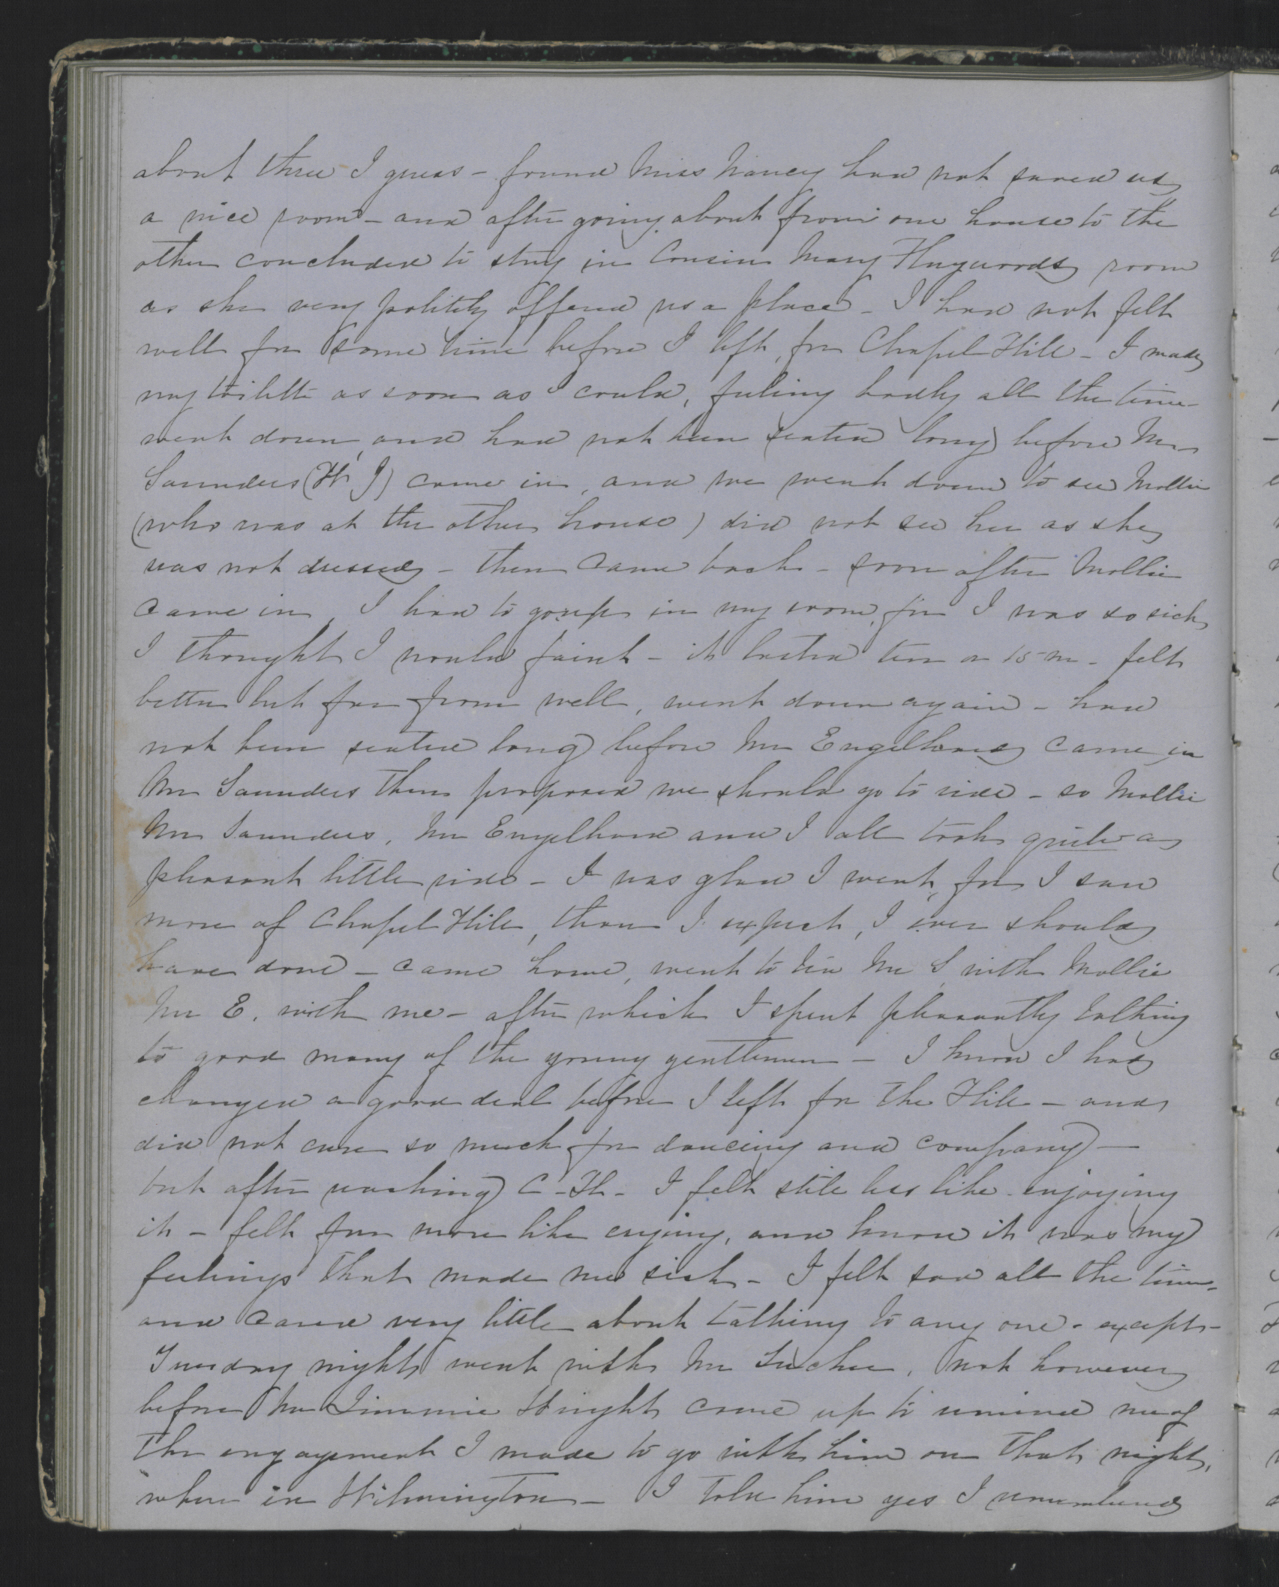 about three I guess - found Miss Nancy had not saved us
a nice room - and after going about from one house to the
other concluded to stay in Cousin Mary Haywoods room
as she very politely offered us a place - I had not felt
well for some time before I left, for Chapel Hill - I made
my toilett as soon as I could, feeling badly all the time -
went down, and had not been seated long before Mr
Saunders (W. J) came in, and we went down to see Mollie
(who was at the other house) did not see her as she
was not dressed - then came back - soon after Mollie
came in, I had to go up in my room, for I was so sick
I thought I would faint - it lasted ten or 15 m - felt
better but far from well, went down again - had
not been seated long before Mr Engelhard came in
Mr Saunders then proposed we should go to ride - so Mollie
Mr Saunders, Mr Engelhard and I all took quite a
pleasant little ride - I was glad I went, for I saw
more of Chapel Hill, than I expect, I ever should
have done - came home, went to tea Mr S with Mollie
Mr E. with me - after which I spent pleasantly talking
to good many of the young gentlemen - I know I had
changed a good deal before I left for the Hill - and
did not care so much for dancing and company -
but after reaching C - H - I felt still less like enjoying
it - felt far more like crying, and know it was my
feelings that made me sick - I felt sad all the time -
and cared very little about talking to any one - except -
Tuesday night went with Mr, not however
before Mr Jimmie Wright came up to remind me of
the engagement I made to go with him on that night,
when in Wilmington - I told him yes I remembered